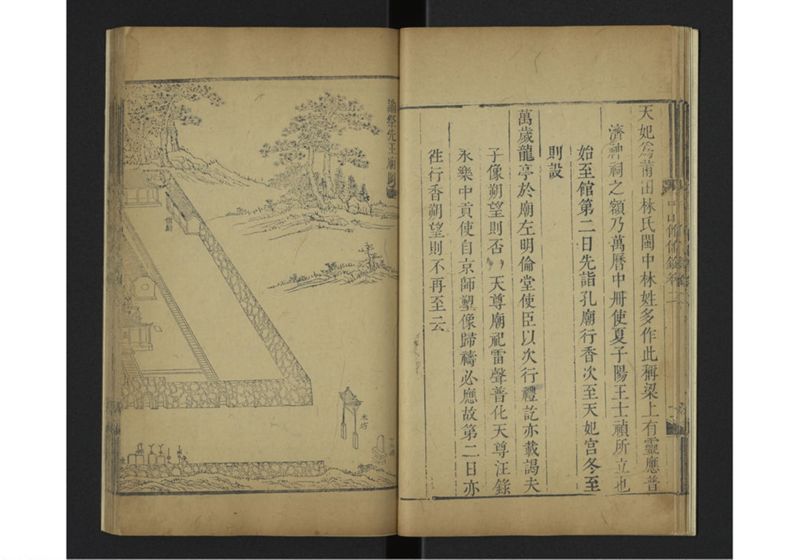 天妃爲莆田林氏閩中林姓多作此稱梁上有靈應普
濟神祠之額乃萬曆中冊使夏子陽王士禎所立也
始至館第二日先詣孔廟行香次至天妃宮冬至
則設
萬歲龍亭於廟左明倫堂使臣以次行禮訖亦載謁夫
子像朔望則否天尊廟祀雷聲普化天尊汪錄
永樂中貢使自京師塑像歸禱必應故第二日亦
徃行香朔望則不再至云
諭祭先王廟圖